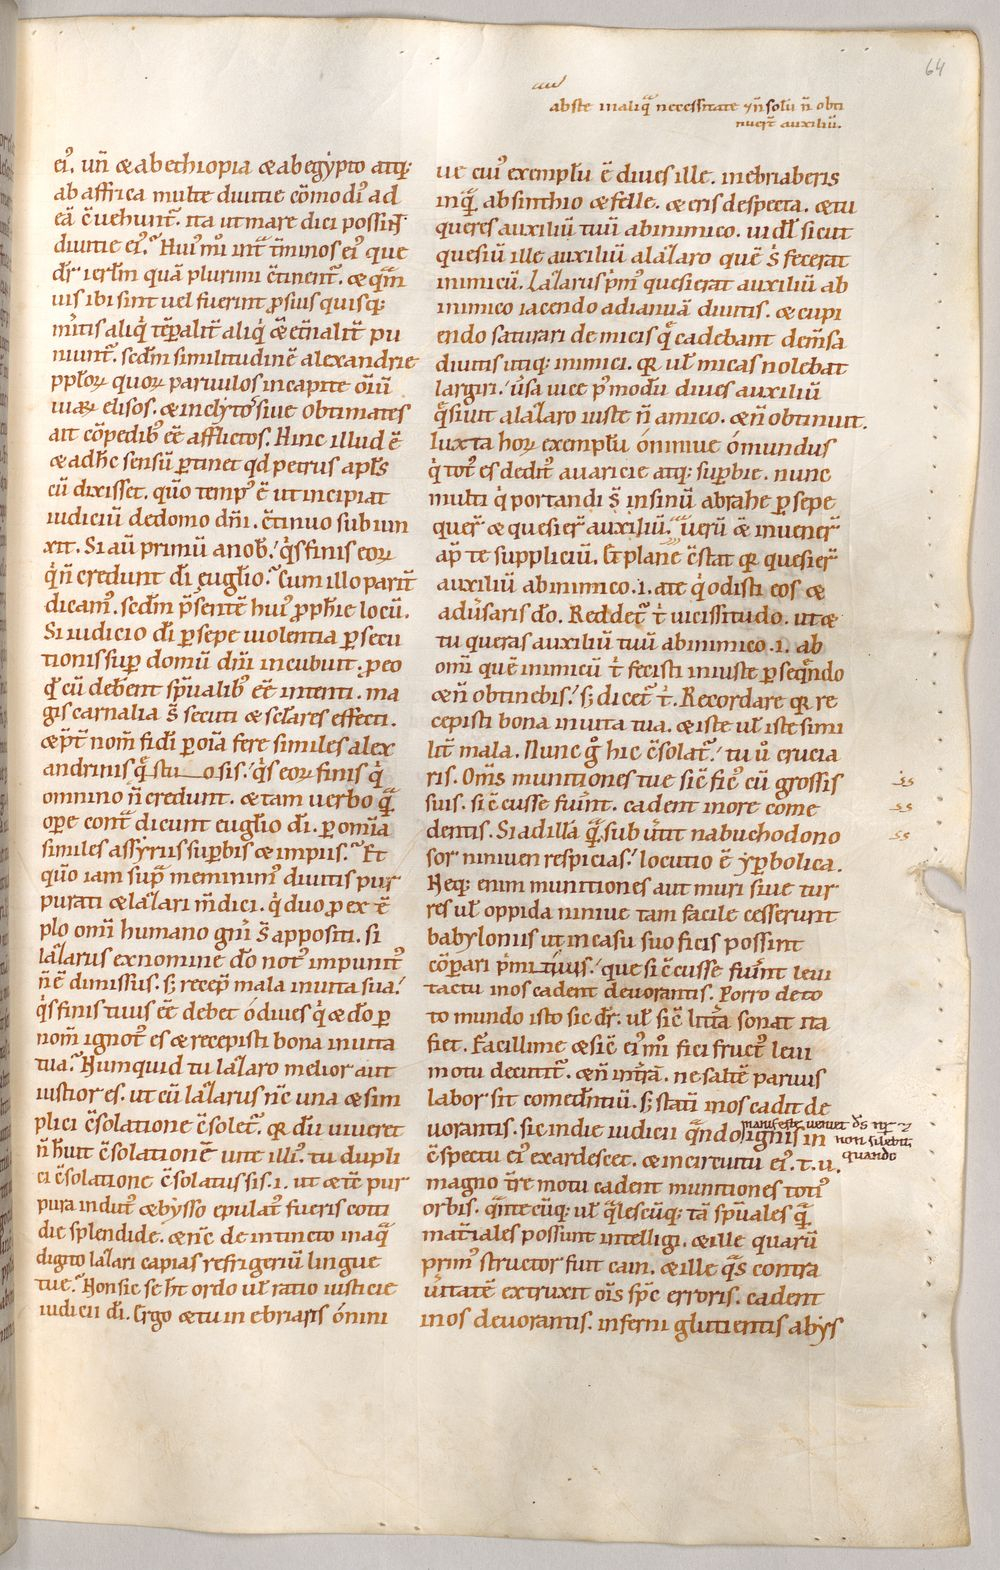 64
abs te in aliq̄ necessitate ⁊ n̄ solū n̄ obti
nuer̄t auxiliū.
ei᷒. Vn̄ & ab ethiopia & ab egẏpto atq;
ab affrica multe diuitie cōmodi᷒ ad
eā c̄uehunt᷑. ita ut mare dici possint
diuitie ei᷒.᷑ Hui᷒mi int᷑ t̄minos ei᷒ que
dr̄ ierl̄m quā plurimi c̄tinent᷑. & q̄m
uis ibi sint uel fuerint ꝓ suis quisq;
m̄itis aliq̇ tēpalit᷑ aliq̇ &̄ et̄nalit᷑ pu
niunt᷑. sedm̄ similitudinē alexandrie
ppl̄oꝝ quoꝝ paruulos in capite om̄iū
uiaꝝ elisos. & inclẏtos siue obtimates
ait cōpedib᷒ eē afflictos. Hinc illud ē
& adhc̄ sensū ꝑtinet qd petrus apl̄s
cū dixisset. qūo temp᷒ ē ut incipiat
iudiciū de domo dn̄i. c̄tinuo subiun
xit. Si aū primū a nob̄.᷑ q̇s finis eoꝝ
q̇ n̄ credunt dī eugl̄io.᷑ Cum illo parit᷑
dicam᷒. sedm̄ p̄sentē hui᷒ ꝓph̄ie locū.
Si iudicio dī ꝑ sepe uiolentia ꝑsecu
tionis suꝑ domū dn̄i incubuit. ꝓ eo
qd̄ cū deberent sp̄ualib᷒ eē intenti. ma
gis carnalia s̄ secuti & sc̄lares effecti.
& p̄t᷑ nom̄ fidi ꝑ oīa fere similes alex
andrinis q̄stuosis.᷑ q̇s eoꝝ finis q̇
omnino n̄ credunt. & tam uerbo q̄
oꝑe cont᷑ dicunt eugl̄io dī. ꝑ omīa
similes assẏriis suꝑbis & impiis.᷑ Et
qūo iam sup᷑ meminim᷒ diuitis pur
purati & lazari m̄dici. q̇ duo ꝓ exē
plo omī humano gn̄i s̄ appositi. si
lazarus ex nomine dō not᷒ impunit᷒
n̄ ē dimissus. s; recep̄ mala in uita sua.᷑
q̇s finis tuus eē debet ó diues q̇ & dō ꝑ
nom̄ ignot᷒ es & recepisti bona in uita
tua.᷑ Numquid tu lazaro melior aut
iustior es. ut cū lazarus n̄c una & sim
plici c̄solatione c̄solet᷑. qꝛ dū uiueret
n̄ h̄uit c̄solationē uite illi᷒. tu dupli
ci c̄solatione c̄solatus sis .i. ut & tc̄ pur
pura indut᷒ & bẏsso epulat᷒ fueris coti
die splendide. & n̄c de intincto in aq̄
digito lazari capias refrigeriū lingue
tue.᷑ Non sic se h̄t ordo ul̄ ratio iusticie
iudicii dī. Ergo & tu inebriaris ó nini
ue cui᷒ exemplū ē diues ille. inebriaberis
inq̄. absinthio & felle. & eris despecta. & tu
queres auxiliū tuū ab inimico. uidl̄ sicut
quesiū ille auxiliū a lazaro quē s᷑ fecerat
inimicū. Lazarus p̄m᷒ quesierat auxiliū ab
inimico iacendo ad ianuā diuitis. & cupi
endo saturari de micis q̄ cadebant de m̄sa
diuitis utiq; inimici. qꝛ ul̄ micas nolebat
largiri.᷑ úsa uice p᷒modū diues auxiliū
q̄siuit a lazaro iuste n̄ amico. & n̄ obtinuit.
Iuxta hoꝝ exemplū ó niniue ó mundus
q̇ tot᷒ es dedit᷒ auaricie atq; suꝑbie. nunc
multi q̇ portandi s̄ in sinū abrahe ꝑ sepe
quer̄ & quesier̄ auxiliū. uerū &̄ inuener̄
ap̄ te suppliciū. Et plane c̄stat qꝛ quesier̄
auxiliū ab inimico .i. a te q̇ odisti eos &
adūsaris dō. Reddet᷑ t̄ uicissitudo. ut &
tu queras auxiliū tuū ab inimico .i. ab
omī quē inimicū t̄ fecisti iniuste ꝑseq̄ndo
& n̄ obtinebis.᷑ s; dicet᷑ t̄. Recordare qꝛ re
cepisti bona in uita tua. & iste ul̄ iste simi
lit᷑ mala. Nunc g̊ hic c̄solat᷑.᷑ tu ů crucia
ris. Om̄s munitiones tue sic̄ fic᷒ cū grossis
suis. si c̄cusse fūint. cadent in ore come
dentis. Si ad illā q̄. sub útit nabuchodono
sor niniuen respicias.᷑ locutio ē ẏꝑbolica.
Neq; enim munitiones aut muri siue tur
res ul̄ oppida niniue tam facile cesserunt
babẏloniis ut in casu suo ficis possint
cōparari p᷒miuis.᷑ que si c̄cusse fūint leui
tactu in os cadent deuorantis. Porro de to
to mundo isto sic dr̄. ul̄ sic̄ lit᷑a sonat ita
fiet. Facillime & sic̄ ei᷒mi fici fruct᷒ leui
motu decutit᷑. & n̄ int᷑rā. ne saltē paruus
labor sit comedn̄tiū. s; statī in os cadit de
uorantis. sic in die iudicii q̄ndo ignis in
manifeste ueniet ds̄ nr̄ ⁊
non silebit;
quando
c̄spectu ei᷒ exardescet. & in circuitu ei᷒ .t.u.
magno t̄re motu cadent munitiones toti᷒
orbis. q̄ntecūq; ul̄ q̄lescūq; tā sp̄uales q̄
mat̄iales possunt intelligi. & ille quarū
prim᷒ structor fuit cain. & ille q̄s contra
úitatē extruxit oīs sp̄c erroris. cadent
in os deuorantis. inferni glutientis abẏs